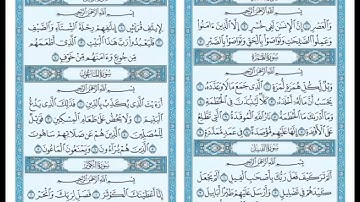 بِسْمِ ٱللَّهِ ٱلرَّحْمَٰنِ ٱلرَّحِيمِ
وَٱلْعَصْرِ ۝١ إِنَّ ٱلْإِنسَٰنَ لَفِى خُسْرٍ ۝٢ إِلَّا ٱلَّذِينَ ءَامَنُوا۟
وَعَمِلُوا۟ ٱلصَّٰلِحَٰتِ وَتَوَاصَوْا۟ بِٱلْحَقِّ وَتَوَاصَوْا۟ بِٱلصَّبْرِ ۝٣
سُورَةُ الهُمَزَةِ
بِسْمِ ٱللَّهِ ٱلرَّحْمَٰنِ ٱلرَّحِيمِ
وَيْلٌ لِّكُلِّ هُمَزَةٍ لُّمَزَةٍ ۝١ ٱلَّذِى جَمَعَ مَالًا وَعَدَّدَهُۥ ۝٢
يَحْسَبُ أَنَّ مَالَهُۥٓ أَخْلَدَهُۥ ۝٣ كَلَّا لَيُنۢبَذَنَّ فِى ٱلْحُطَمَةِ ۝٤
وَمَآ أَدْرَىٰكَ مَا ٱلْحُطَمَةُ ۝٥ نَارُ ٱللَّهِ ٱلْمُوقَدَةُ ۝٦ ٱلَّتِى تَطَّلِعُ
عَلَى ٱلْأَفْـِٔدَةِ ۝٧ إِنَّهَا عَلَيْهِم مُّؤْصَدَةٌ ۝٨ فِى عَمَدٍ مُّمَدَّدَةٍۭ ۝٩
سُورَةُ الفِيلِ
بِسْمِ ٱللَّهِ ٱلرَّحْمَٰنِ ٱلرَّحِيمِ
أَلَمْ تَرَ كَيْفَ فَعَلَ رَبُّكَ بِأَصْحَٰبِ ٱلْفِيلِ ۝١ أَلَمْ يَجْعَلْ
كَيْدَهُمْ فِى تَضْلِيلٍ ۝٢ وَأَرْسَلَ عَلَيْهِمْ طَيْرًا أَبَابِيلَ ۝٣
بِسْمِ ٱللَّهِ ٱلرَّحْمَٰنِ ٱلرَّحِيمِ
لِإِيلَٰفِ قُرَيْشٍ ۝١ إِۦلَٰفِهِمْ رِحْلَةَ ٱلشِّتَآءِ وَٱلصَّيْفِ ۝٢
فَلْيَعْبُدُوا۟ رَبَّ هَٰذَا ٱلْبَيْتِ ۝٣ ٱلَّذِىٓ أَطْعَمَهُم
مِّن جُوعٍ وَءَامَنَهُم مِّنْ خَوْفٍۭ ۝٤
سُورَةُ المَاعُونِ
بِسْمِ ٱللَّهِ ٱلرَّحْمَٰنِ ٱلرَّحِيمِ
أَرَءَيْتَ ٱلَّذِى يُكَذِّبُ بِٱلدِّينِ ۝١ فَذَٰلِكَ ٱلَّذِى يَدُعُّ
ٱلْيَتِيمَ ۝٢ وَلَا يَحُضُّ عَلَىٰ طَعَامِ ٱلْمِسْكِينِ ۝٣ فَوَيْلٌ
لِّلْمُصَلِّينَ ۝٤ ٱلَّذِينَ هُمْ عَن صَلَاتِهِمْ سَاهُونَ ۝٥
ٱلَّذِينَ هُمْ يُرَآءُونَ ۝٦ وَيَمْنَعُونَ ٱلْمَاعُونَ ۝٧
سُورَةُ الكَوْثَرِ
بِسْمِ ٱللَّهِ ٱلرَّحْمَٰنِ ٱلرَّحِيمِ
إِنَّآ أَعْطَيْنَٰكَ ٱلْكَوْثَرَ ۝١ فَصَلِّ لِرَبِّكَ وَٱنْحَرْ ۝٢